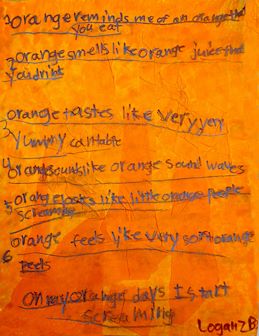 orange reminds me of an orange that
you eat
2 orange smells like orange juice that
you drink
orange tastes like very very
3 yummy
4 orange sounds like orange sound waves
5 orange looks like little orange people
screaming
orange feels like very soft orange
6 peels
on my orange days I start
screaming
Logan ZB